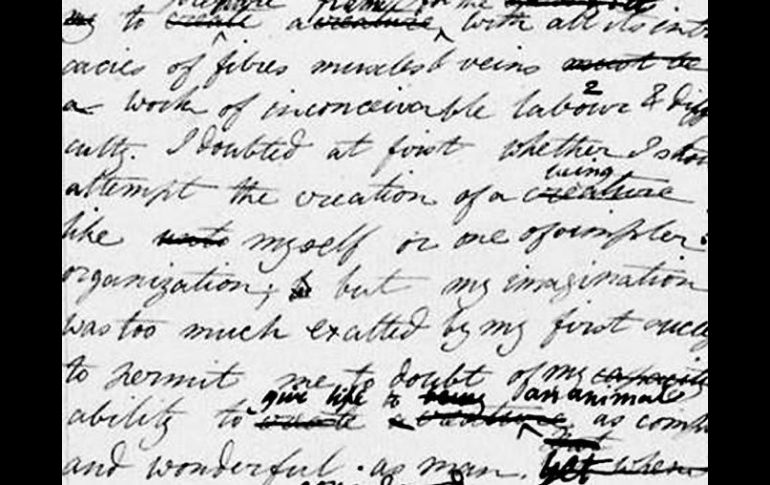 prepare frame for the
my to create a creature, with all its intri
cacies of fibres muscles & veins must be
a work of inconceivable labour & diffi
culty. I doubted at first whether I shou
being
attempt the creation of a creature
like unto myself or one of simpler
organization; but my imagination
was too much exalted by my first succe
to permit me to doubt of my capacity
give life to being an animal
ability to create a creature as comp
and wonderful as man. Yet when